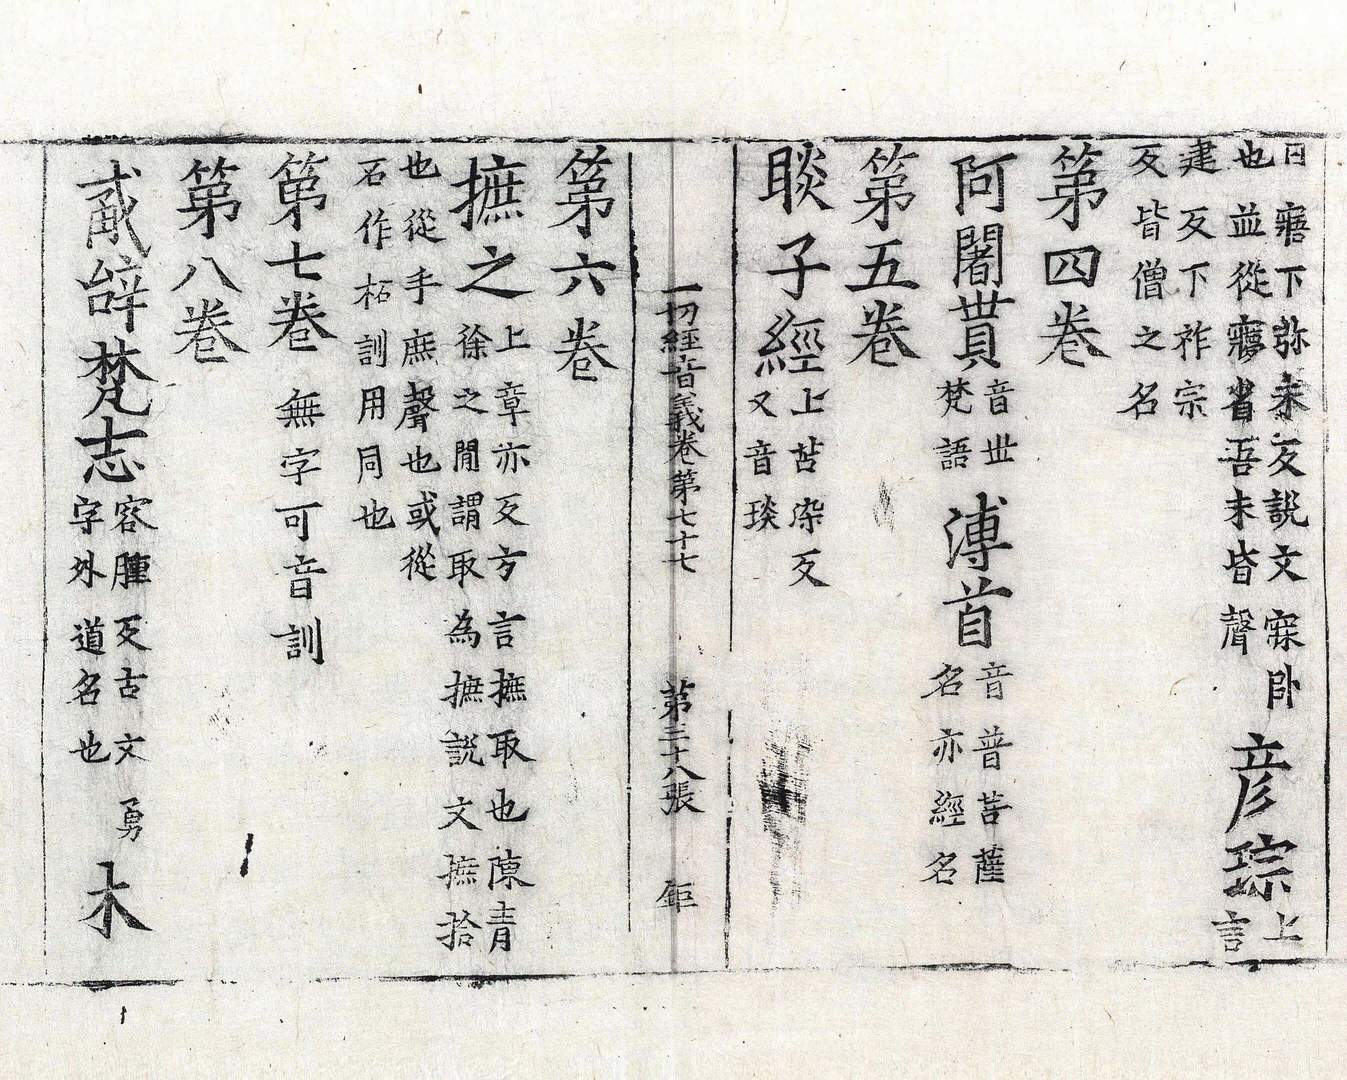 曰寤下弥未反說文寐卧
也並從㝱省吾未皆聲
彦琮
上言
建反下祚宗
反皆僧之名
第四卷
阿闍貰
音世
梵語
溥首
音普菩薩
名亦經名
第五卷
睒子經
上苫染反
又音琰
一切經音義卷第七十七 第三十八張 鉅
第六卷
摭之
上章亦反方言摭取也陳青
徐之閒謂取為摭說文摭拾
也從手庶聲也或從
石作柘訓用同也
第七卷
無字可音訓
第八卷
㦛辝梵志
容腫反古文勇
字外道名也
木